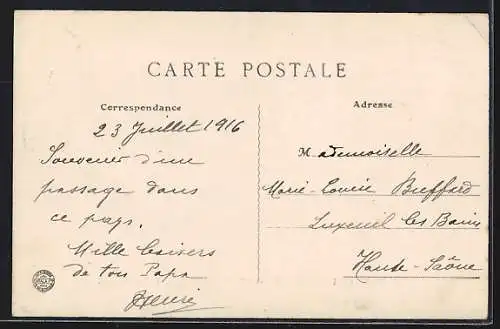 CARTE POSTALE
Correspondance
Adresse
23 Juillet 1916
Souvenir d'un
passage dans
ce pays.
Mille baisers
de ton Papa
Henri
Mademoiselle
Marie-Louise Buffard
Luxeuil les Bains
Haute-Saône